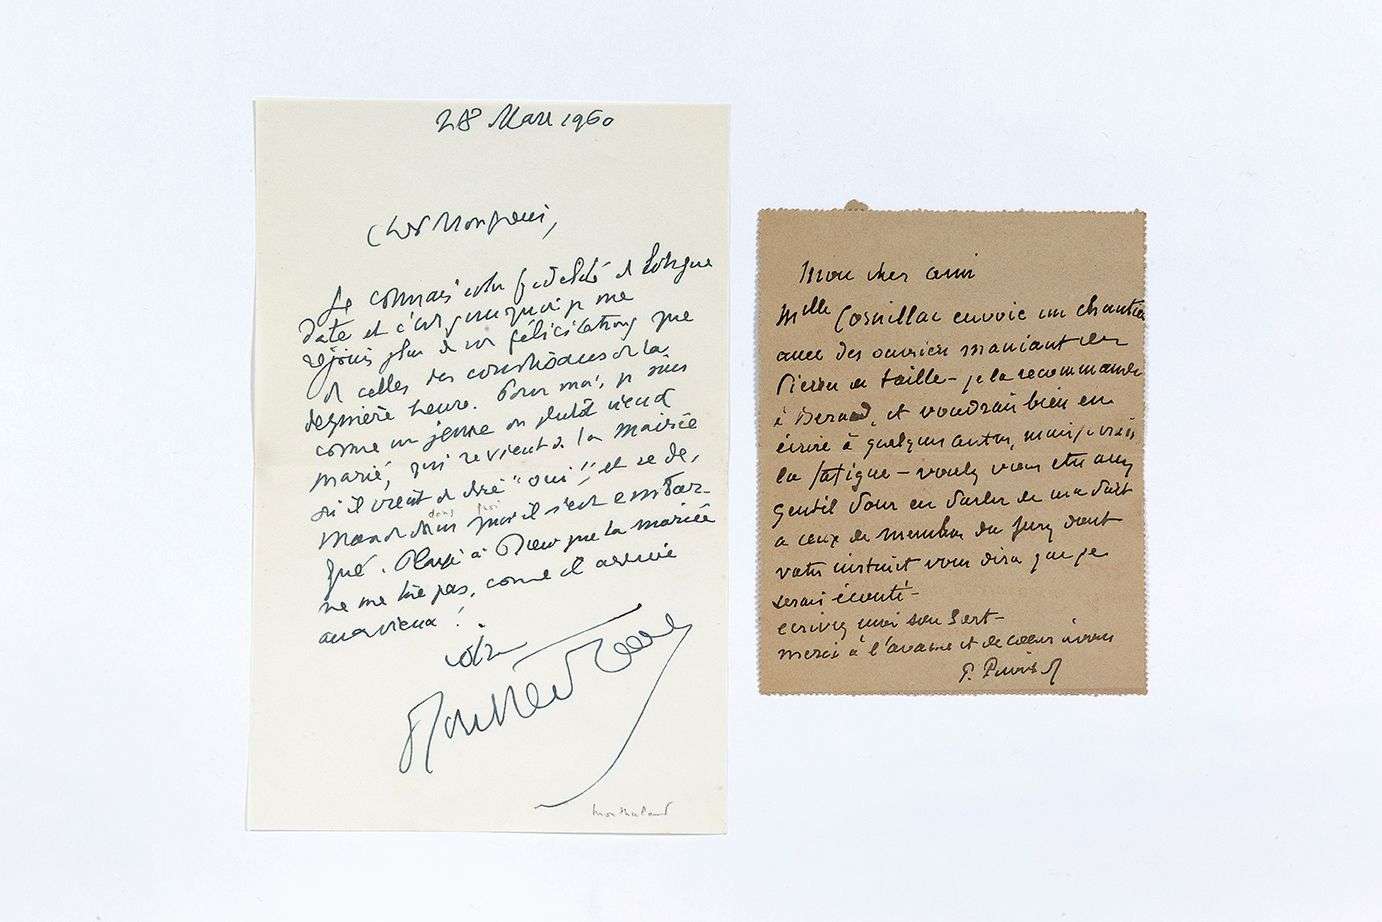 28 Mars 1960
Cher Monsieur,
Je connais votre fidélité de longue
date et c'est pourquoi je me
réjouis plus de vos félicitations que
de celles des courtisans de la
dernière heure. Pour moi, je suis
comme un jeune ou plutôt vieux
marié, qui revient de la mairie
où il vient de dire "oui", et se de-
mande dans quoi il s'est embar-
dans quoi
qué. Plaise à Dieu que la mariée
ne me tue pas, comme il arrive
aux vieux !
votre
Montherlant
Mon cher ami
Mlle Cornillac envoie un chantier
avec des ouvriers maniant des
Pierres de taille - je la recommande
à Beraud, et voudrais bien en
écrire à quelques autres, mais je crains
la fatigue - voulez vous être assez
gentil Pour en Parler de ma Part
a ceux des membres du Jury dont
votre instinct vous dira que je
serais écouté -
ecrivez moi son Sort -
merci à l'avance et de cœur à vous
P. Puvis